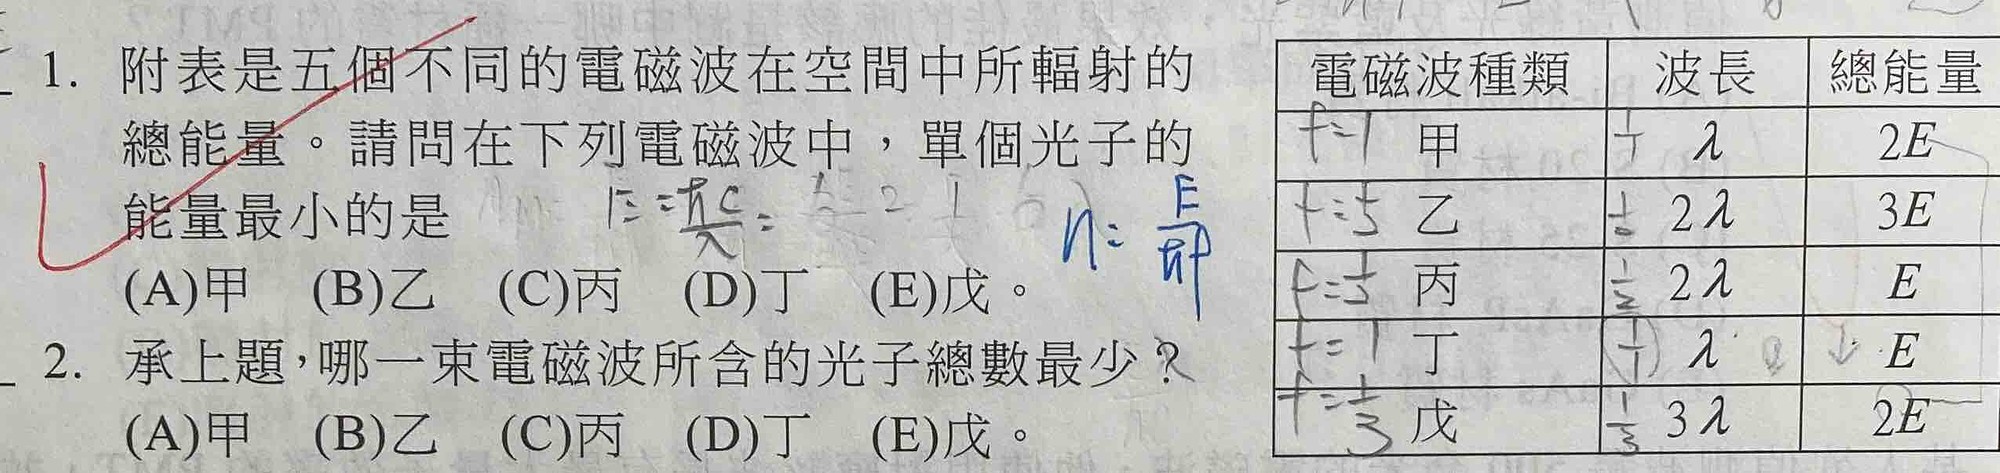 1. 附表是五個不同的電磁波在空間中所輻射的
總能量。請問在下列電磁波中，單個光子的
能量最小的是
(A)甲 (B)乙 (C)丙 (D)丁 (E)戊。
2. 承上題，哪一束電磁波所含的光子總數最少？
(A)甲 (B)乙 (C)丙 (D)丁 (E)戊。
電磁波種類 波長 總能量
f=1 甲 λ 2E
乙 2λ 3E
丙 1/2 2λ E
f=1 丁 λ E
f=1/3 戊 1/3 3λ 2E